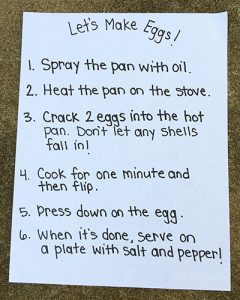 Let's Make Eggs!
1. Spray the pan with oil.
2. Heat the pan on the stove.
3. Crack 2 eggs into the hot
pan. Don't let any shells
fall in!
4. Cook for one minute and
then flip.
5. Press down on the egg.
6. When it's done, serve on
a plate with salt and pepper!